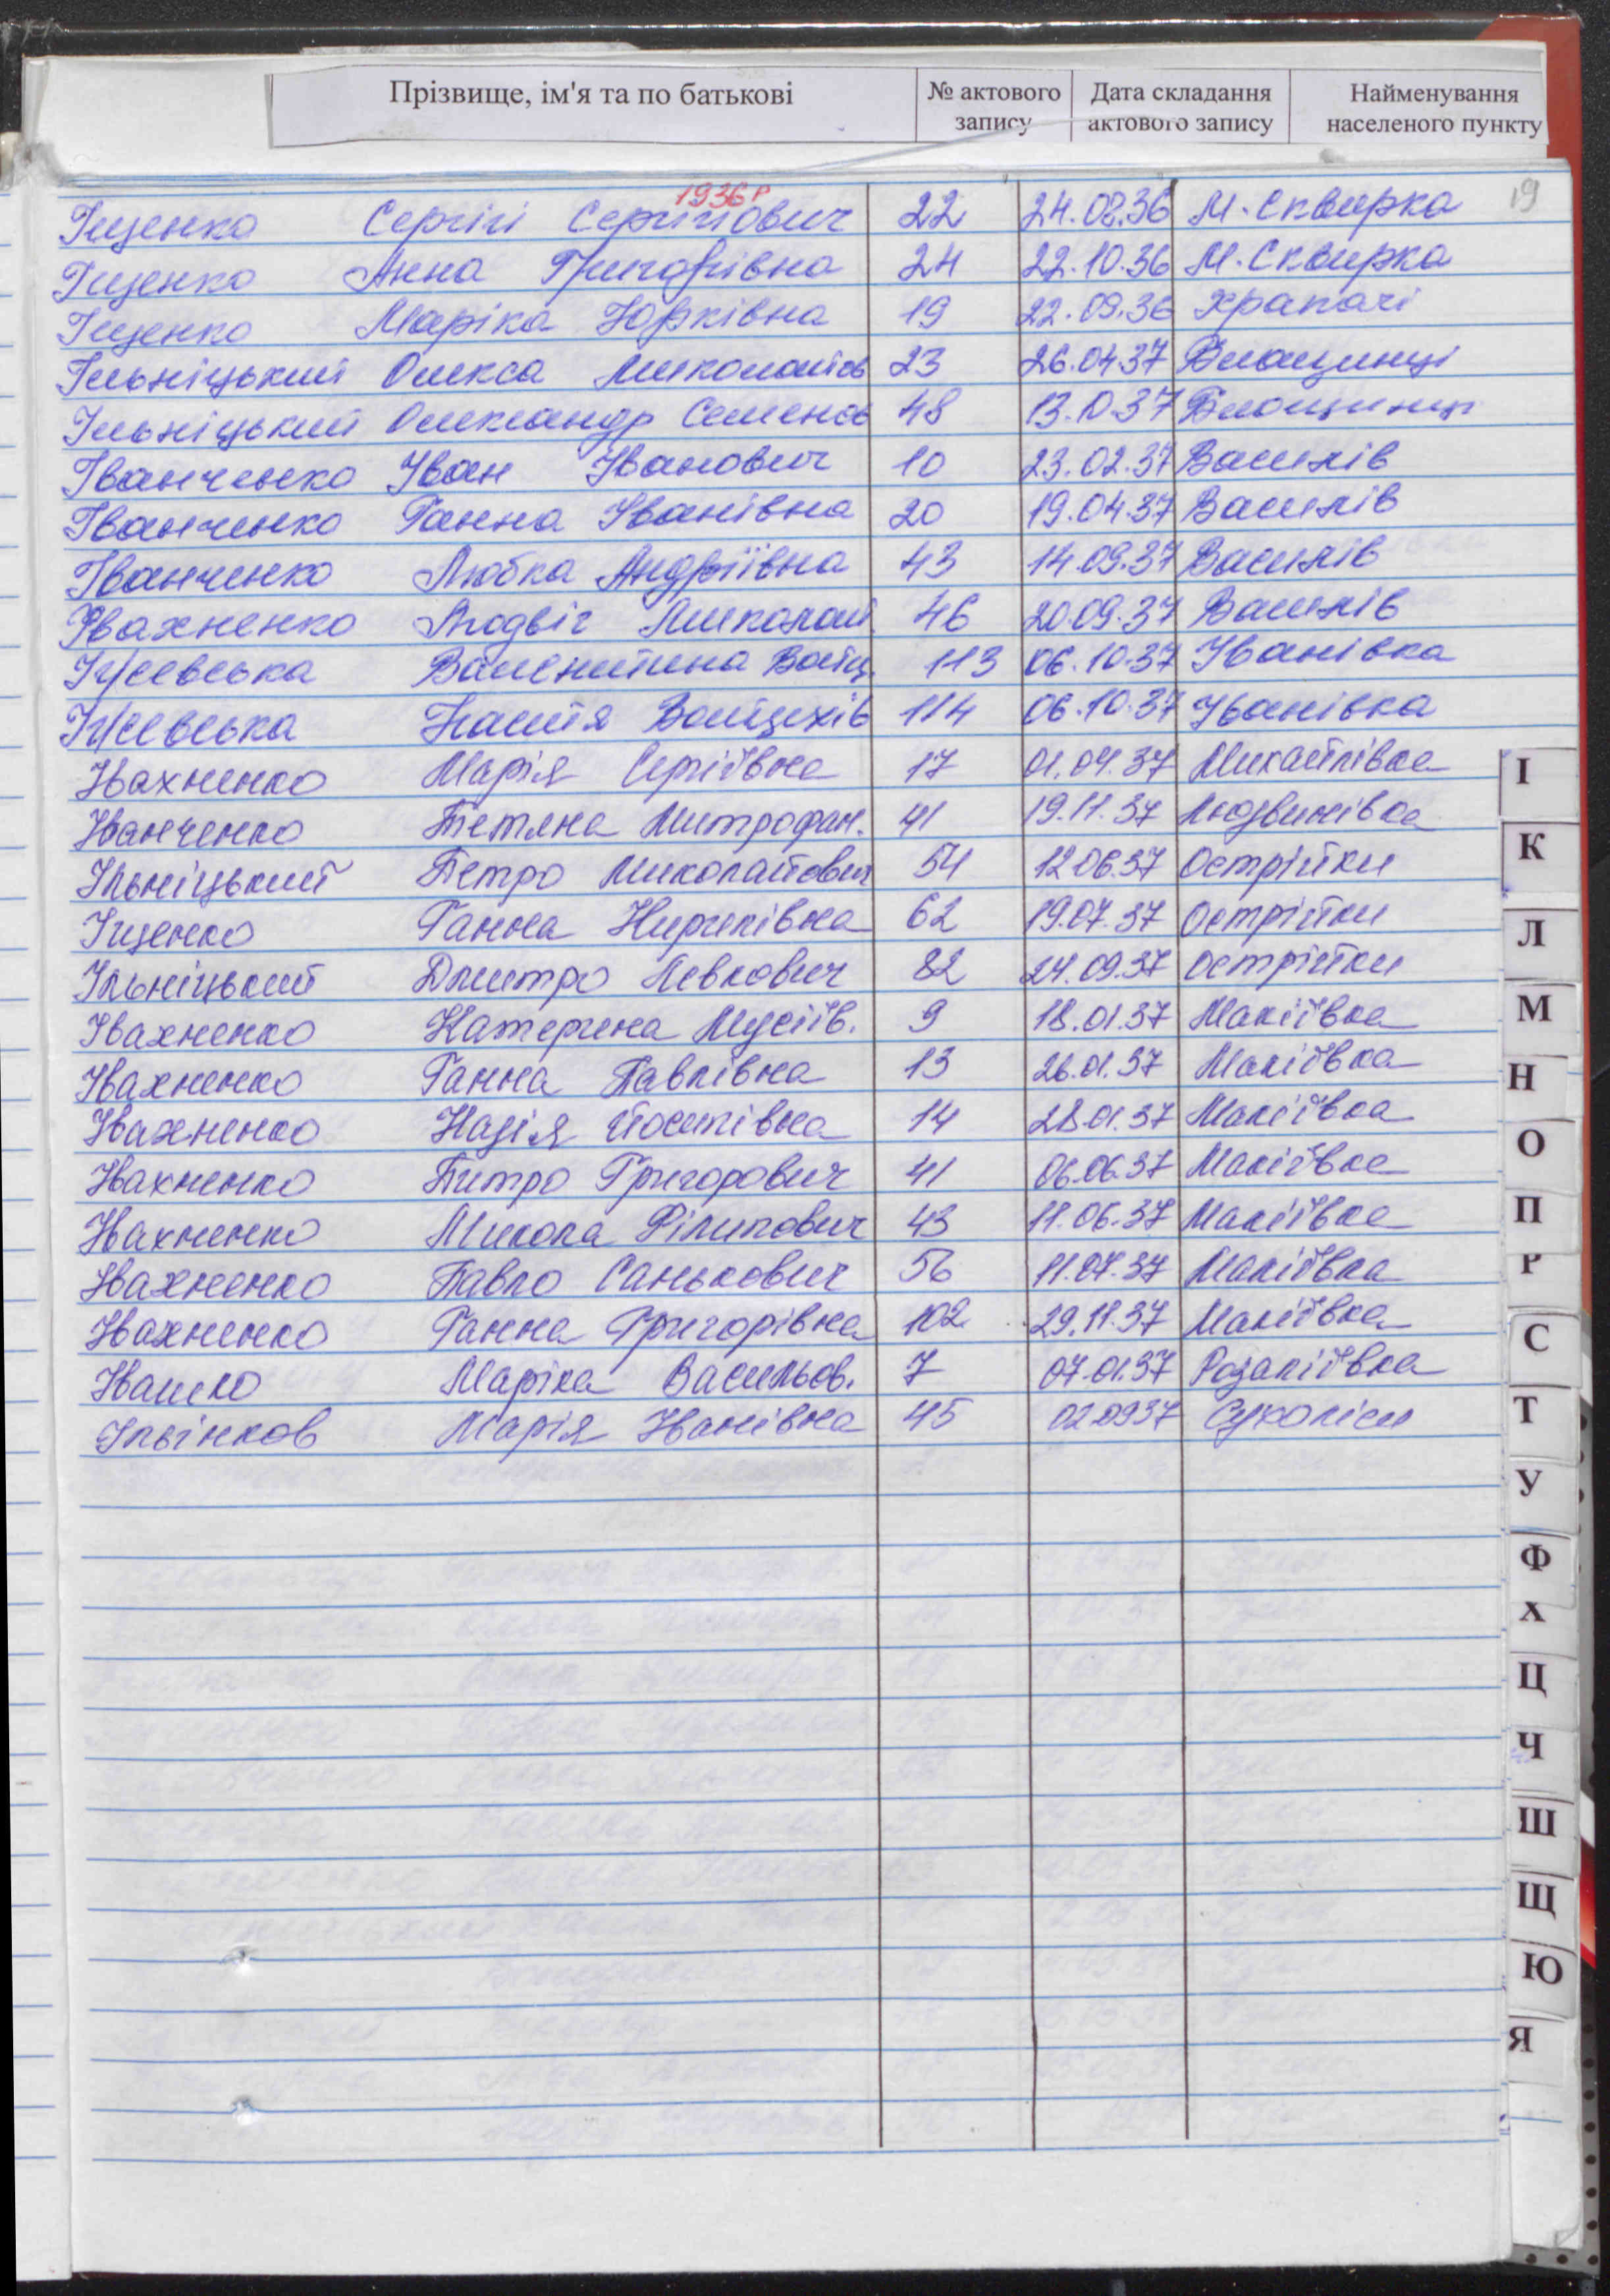 Прізвище, ім'я та по батькові № актового запису Дата складання актового запису Найменування населеного пункту
1936 р
19
Іщенко Сергій Сергійович 22 24.02.36 М. Сквирка
Іщенко Анна Григорівна 24 22.10.36 М. Сквирка
Іщенко Маріка Юрківна 19 22.09.36 Храпачі
Ільніцький Олекса Миколайов 23 26.04.37 Блощинці
Ільніцький Олександр Семенов 48 13.10.37 Блощинці
Іванченко Іван Іванович 10 23.02.37 Василів
Іванченко Ганна Іванівна 20 19.04.37 Василів
Іванченко Любка Андріївна 43 14.09.37 Василів
Івахненко Людвіг Миколай. 46 20.09.37 Василів
Валентина Войц. 113 06.10.37 Іванівка
Настя Войцехів 114 06.10.37 Іванівка
Івахненко Марія Сергіївна 17 01.04.37 Михайлівка
Іванченко Тетяна Митрофан. 41 19.11.37 Людвинівка
Ільніцький Петро Миколайович 54 12.06.37 Острійки
Іщенко Ганна Кирилівна 62 19.07.37 Острійки
Ільніцький Дмитро Левкович 82 24.09.37 Острійки
Івахненко Катерина Мусіїв. 9 18.01.37 Макіївка
Івахненко Ганна Павлівна 13 26.01.37 Макіївка
Івахненко Надія Йосипівна 14 28.01.37 Макіївка
Івахненко Питро Григорович 41 06.06.37 Макіївка
Івахненко Микола Філипович 43 11.06.37 Макіївка
Івахненко Павло Санькович 56 11.07.37 Макіївка
Івахненко Ганна Григорівна 102 29.11.37 Макіївка
Івашко Маріка Васильов. 7 07.01.37 Розаліївка
Ільїнков Марія Іванівна 45 02.0937 Сухоліси
І
К
Л
М
Н
О
П
Р
С
Т
У
Ф
Х
Ц
Ч
Ш
Щ
Ю
Я